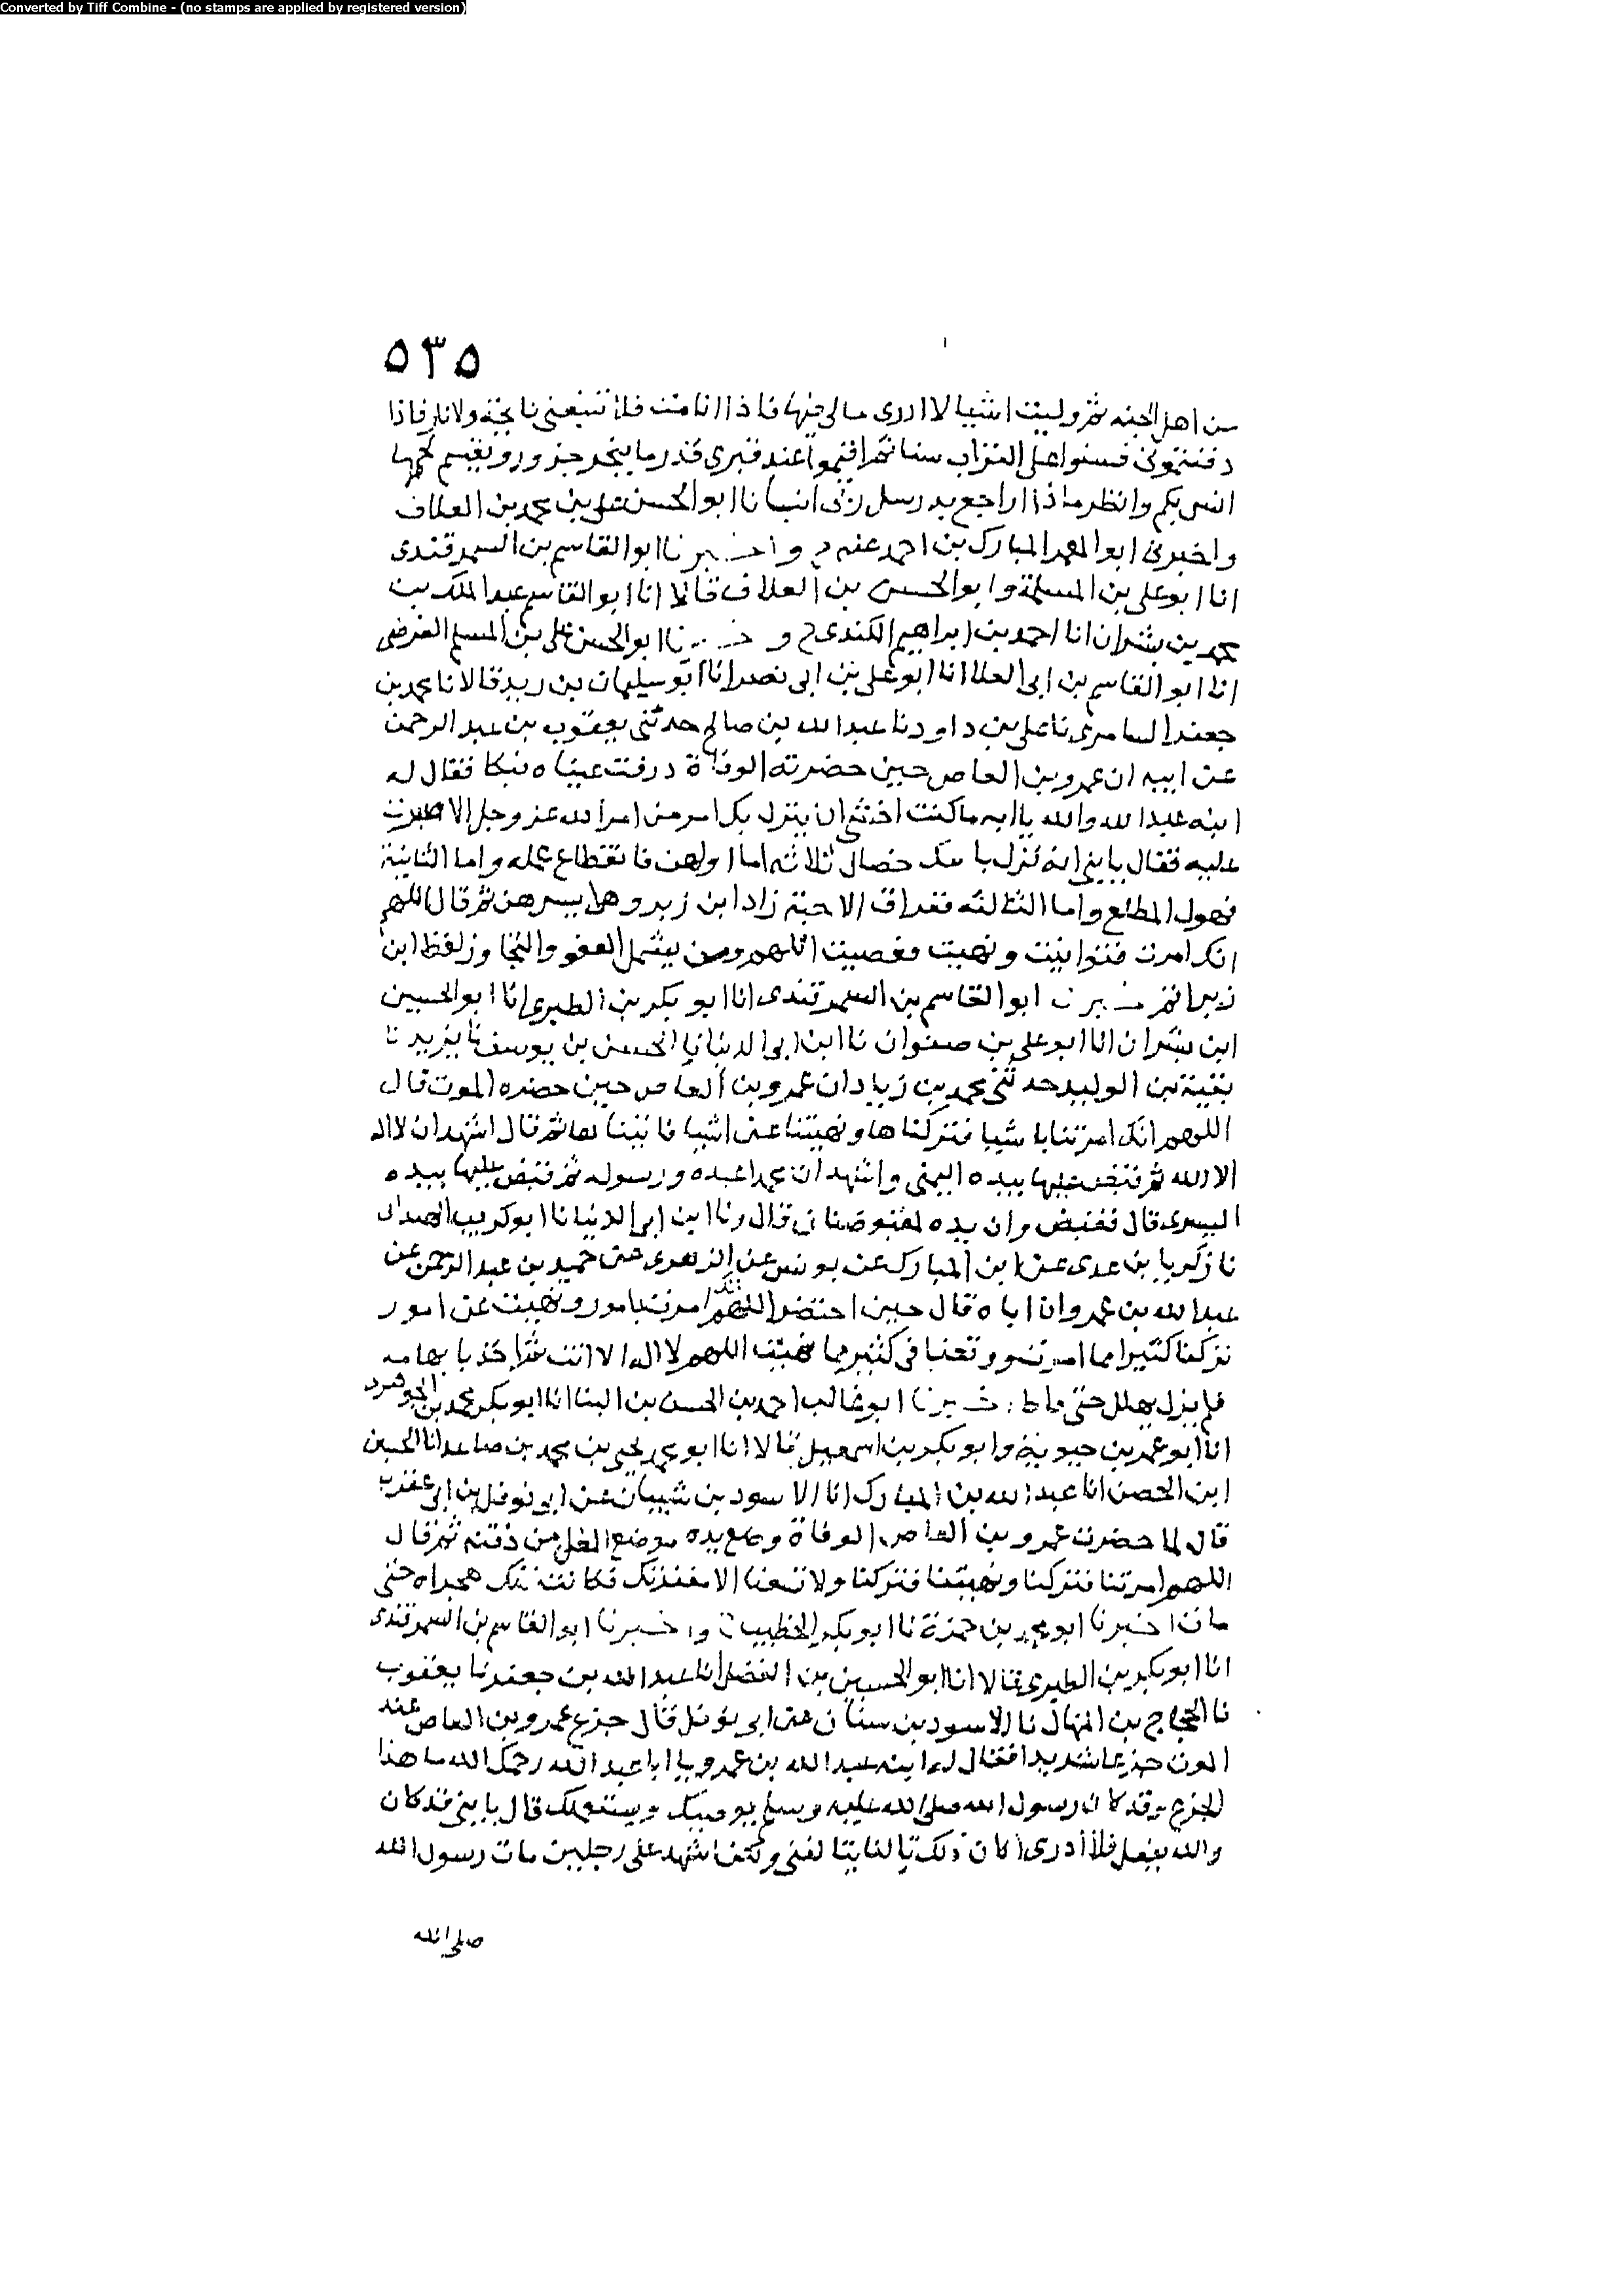 Converted by Tiff Combine - (no stamps are applied by registered version)
٥٣٥
من اهل الجنه ثم وليت اشيا لا ادرى مالى فيها فاذا انا مت فلا تتبعنى نايحة ولا نار فاذا
دفنتمونى فسنوا على التراب سنا ثم اقيموا عند قبرى قدر ما ينحر جزور ويقسم لحمها
انس بكم وانظر ماذا اراجع به رسل ربى انبانا ابو الحسن على بن محمد بن العلاف
واخبرنى ابو المعمر المبارك بن احمد عنه ح واخبرنا ابو القاسم بن السمرقندى
انا ابو على بن المسلمة وابو الحسن بن العلاف قالا انا ابو القاسم عبد الملك بن
محمد بن بشران انا احمد بن ابراهيم الكندى ح واخبرنا ابو الحسن على بن المسلم الفرضى
انا ابو القاسم بن ابى العلا انا ابو على بن ابى نصر انا ابو سليمان بن زبد قالا نا محمد بن
جعفر السامرى نا على بن داود نا عبد الله بن صالح حدثنى يعقوب بن عبد الرحمن
عن ابيه ان عمرو بن العاص حين حضرته الوفاة درفت عيناه فبكا فقال له
ابنه عبد الله والله يا ابه ما كنت اخشى ان ينزل بك امر من امر الله عز وجل الا صبرت
عليه فقال يا بنى انه نزل بابيك خصال ثلاثه اما اولهن فانقطاع عمله واما الثانية
فهول المطلع واما الثالثه ففراق الاحبة زاد ابن زبر وهى ايسرهن ثم قال اللهم
انك امرت فتوانيت ونهيت فعصيت اللهم ومن شيمك العفو والتجاوز لفظ ابن
زبر اخبرنا ابو القاسم بن السمرقندى انا ابو بكر بن الطبرى انا ابو الحسين
ابن بشران انا ابو على بن صفوان نا ابن ابى الدنيا نا الحسن بن يوسف نا يزيد نا
بقية بن الوليد حدثنى محمد بن زياد ان عمرو بن العاص حين حضره الموت قال
اللهم انك امرتنا باشيا فتركناها ونهيتنا عن اشيا فاتيناها ثم قال اشهد ان لا اله
الا الله ثم قبض عليها بيده اليمنى واشهد ان محمدا عبده ورسوله ثم قبض عليها بيده
اليسرى قال فقبض وان يده لمقبوضتان قال ونا ابن ابى الدنيا نا ابو كريب الهمدانى
نا زكريا بن عدى عن ابن المبارك عن يونس عن الزهرى عن حميد بن عبد الرحمن عن
عبد الله بن عمرو ان اباه قال حين احتضر اللهم انك امرت بامور ونهيت عن امور
تركنا كثيرا مما امرت ووقعنا فى كثير مما نهيت اللهم لا اله الا انت ثم اخذ بابهامه
فلم يزل يهلل حتى مات اخبرنا ابو غالب احمد بن الحسن بن البنا انا ابو بكر محمد بن الجوهرى
انا ابو عمر بن حيوية وابو بكر بن اسمعيل قالا انا ابو محمد يحيى بن محمد بن صاعد انا الحسين
ابن الحصن انا عبد الله بن المبارك انا الاسود بن شيبان عن ابى نوفل بن ابى عقرب
قال لما حضرت عمرو بن العاص الوفاة وضع يده موضع الغل من ذقنه ثم قال
اللهم امرتنا فتركنا ونهيتنا فتركنا ولا تسعنا الا مغفرتك فكانت تلك هجيراه حتى
مات اخبرنا ابو محمد بن حمزة نا ابو بكر الخطيب ح واخبرنا ابو القاسم بن السمرقندى
انا ابو بكر بن الطبرى قالا انا ابو الحسين بن الفضل انا عبد الله بن جعفر نا يعقوب
نا الحجاج بن المنهال نا الاسود بن سنان عن ابى نوفل قال جزع عمرو بن العاص عند
الموت جزعا شديدا فقال له ابنه عبد الله بن عمرو يا ابا عبد الله رحمك الله ما هذا
الجزع وقد كان رسول الله صلى الله عليه وسلم يوصيك ويستعملك قال يا بنى قد كان
والله يفعل فلا ادرى اكان ذلك تالفا يتالفنى ولكن اشهد على رجلين مات رسول الله
صلى الله